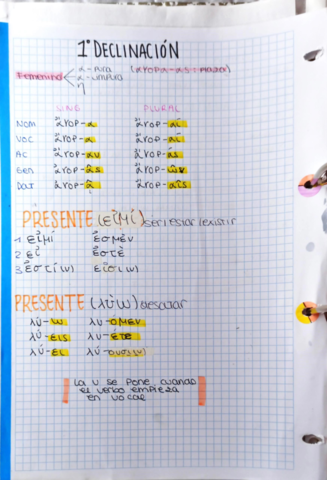 1ª DECLINACIÓN
α-pura (αγορα-ας: plaza)
Femenino α-impura
η
SING PLURAL
Nom ἀγορ-α ἀγορ-αί
Voc ἀγορ-α ἀγορ-αί
Ac ἀγορ-αν ἀγορ-ás
Gen ἀγορ-ᾶς ἀγορ-ῶν
Dat ἀγορ-ᾷ ἀγορ-αῖς
PRESENTE (εἰμί) ser/estar/existir
1 εἰμί ἐσμέν
2 εἶ ἐστέ
3 ἐστί(ν) εἰσί(ν)
PRESENTE (λύω) desatar
λύ-ω λυ-ομεν
λύ-εις λυ-ετε
λύ-ει λύ-ουσι(ν)
La ν se pone cuando
el verbo empieza
en vocal